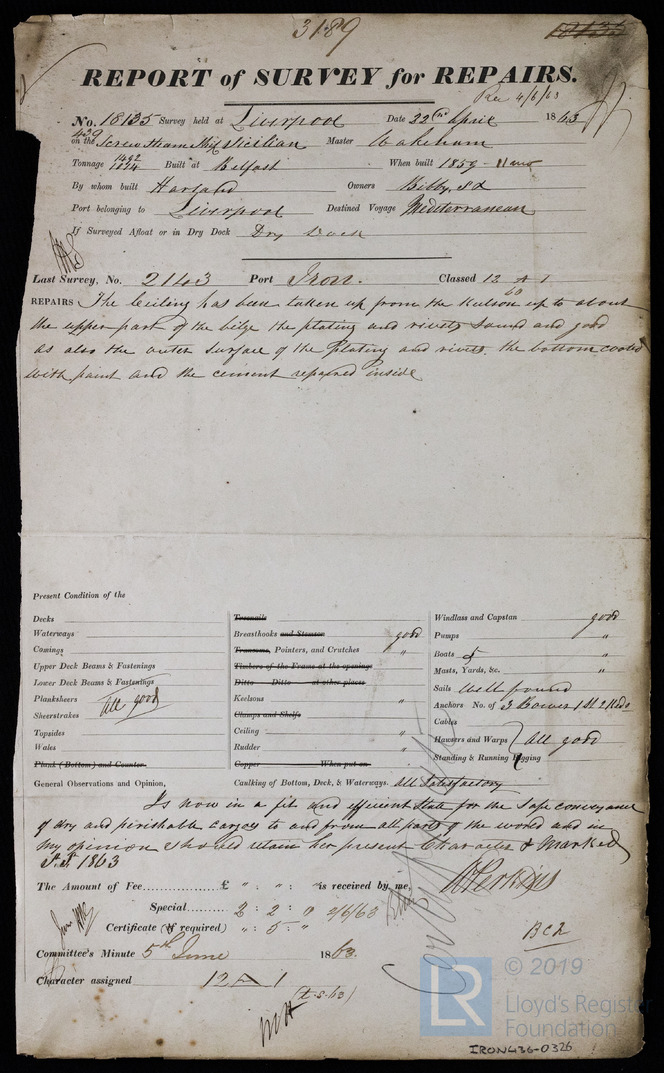 3189
18135
REPORT of SURVEY for REPAIRS.
Rec 4/6/63
No. 18135 Survey held at Liverpool Date 22nd April 1863
439
on the Screw Steam Ship Sicilian Master Wakeham
Tonnage 1492/1024 Built at Belfast When built 1859 - 11 mo
By whom built Harland Owners Bibby, &c
Port belonging to Liverpool Destined Voyage Mediterranean
If Surveyed Afloat or in Dry Dock Dry Dock
Last Survey, No. 2143 Port Iron. Classed 12 A 1
60
REPAIRS The Ceiling has been taken up from the Keelson up to about
the upper part of the bilge the plating and rivets sound and good
as also the outer surface of the plating and rivets. the bottom coated
with paint and the cement repaired inside
Present Condition of the
Decks
Waterways
Comings
Upper Deck Beams & Fastenings
Lower Deck Beams & Fastenings
Planksheers All good
Sheerstrakes
Topsides
Wales
Plank (Bottom) and Counter
General Observations and Opinion,
Treenails
Breasthooks and Stemson good
Transoms, Pointers, and Crutches "
Timbers of the Frame at the openings
Ditto Ditto at other places
Keelsons "
Clamps and Shelfs
Ceiling "
Rudder "
Copper When put on
Caulking of Bottom, Deck, & Waterways. All Satisfactory
Windlass and Capstan good
Pumps "
Boats 5 "
Masts, Yards, &c. "
Sails Well found
Anchors No. of 3 Bowers 1 St 2 Keds
Cables
Hawsers and Warps All good
Standing & Running Rigging
Is now in a fit and efficient State for the safe conveyance
of dry and perishable Cargoes to and from all parts of the world and in
my opinion should retain her present Character & Marked
S.S. 1863
The Amount of Fee £ " : " : " is received by me, W Perkins
Special 2 : 2 : 0 2/6/63
Certificate (if required) " : 5 : "
BCR
Committee's Minute 5th June 1863.
Character assigned 12 A 1
(t.s.63)
© 2019
LR
Lloyd's Register
Foundation
IRON436-0326